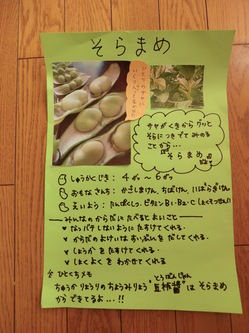 そらまめ
サヤがくきから グッと
そらにつきでて みのる
ことから…
そらまめ
しゅうかくじき：4がつ〜6がつ
おもな さんち：かごしまけん、ちばけん、いばらきけん
えいよう：たんぱくしつ、ビタミンB1・B2・C
みんなのからだに たべるとよいこと
なつバテしないように たすけてくれる。
からだの よけいな すいぶんを だしてくれる。
しょうかを たすけてくれる。
しょくよくを わかせてくれる。
ひとくちメモ
ちゅうかりょうりの ちょうみりょう
とうばんじゃん
豆板醤 は そらまめ
から できてるよ…!!